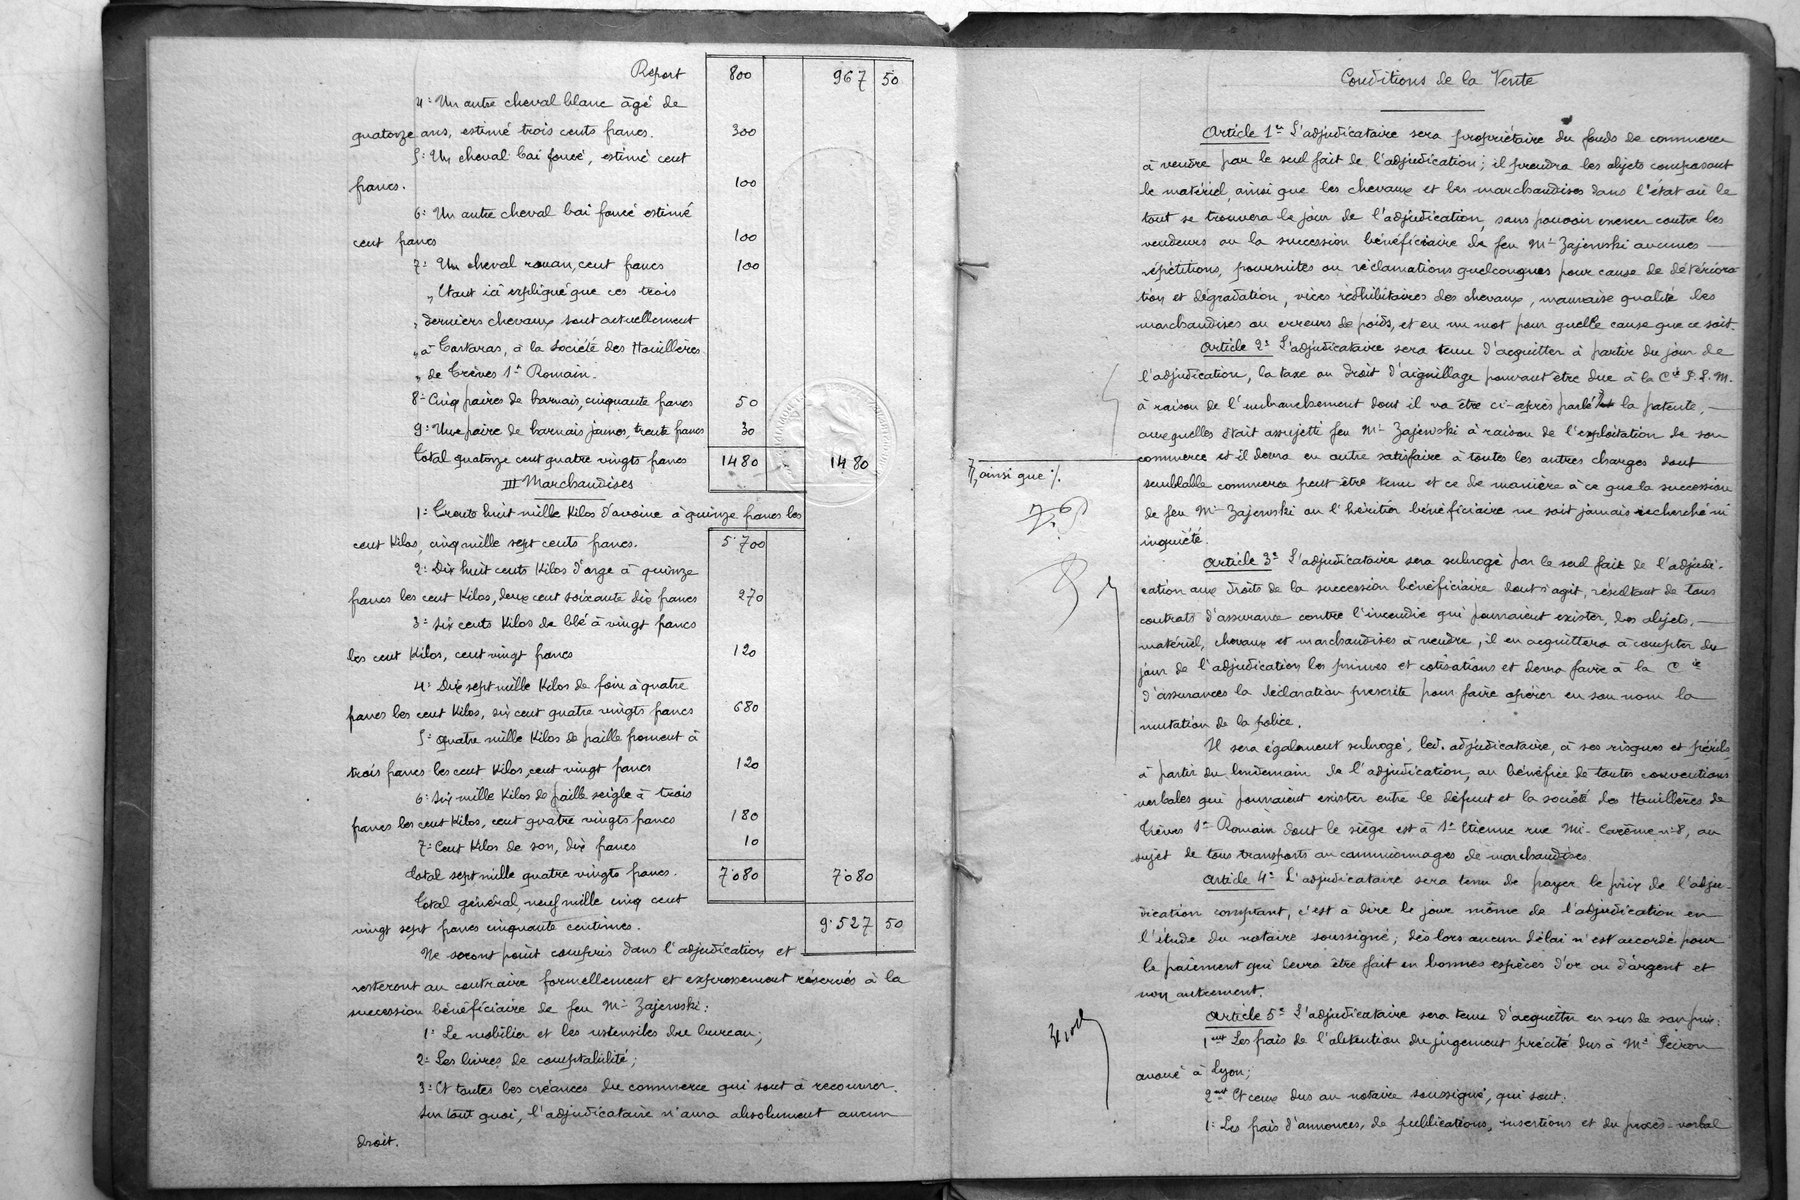 Report 800 967 50
4: Un autre cheval blanc âgé de
quatorze ans, estimé trois cents francs. 300
5: Un cheval bai foncé, estimé cent
francs. 100
6: Un autre cheval bai foncé estimé
cent francs 100
7: Un cheval rouan, cent francs 100
„ Etant ici expliqué que ces trois
„ derniers chevaux sont actuellement
„ à Tartaras, à la Société des Houillères
„ de Trèves St Romain.
8: Cinq paires de harnais, cinquante francs 50
9: Une paire de harnais jaunes, trente francs 30
Total quatorze cent quatre vingts francs 1480 1480
III Marchandises
1: Trente huit mille Kilos d'avoine à quinze francs les
cent Kilos, cinq mille sept cents francs. 5.700
2: Dix huit cents Kilos d'orge à quinze
francs les cent Kilos, deux cent soixante dix francs 270
3: Six cents Kilos de blé à vingt francs
les cent Kilos, cent vingt francs 120
4: Dix sept mille Kilos de foin à quatre
francs les cent Kilos, six cent quatre vingts francs 680
5: Quatre mille Kilos de paille froment à
trois francs les cent Kilos, cent vingt francs 120
6: Six mille Kilos de paille seigle à trois
francs les cent Kilos, cent quatre vingts francs 180
7: Cent Kilos de son, dix francs 10
Total sept mille quatre vingts francs. 7.080 7.080
Total général, neuf mille cinq cent
vingt sept francs cinquante centimes. 9.527 50
Ne seront point compris dans l'adjudication et
resteront au contraire formellement et expressément réservés à la
succession bénéficiaire de feu Mr Zajewski:
1: Le mobilier et les ustensiles du bureau;
2: Les livres de comptabilité;
3: Et toutes les créances du commerce qui sont à recouvrer.
Sur tout quoi, l'adjudicataire n'aura absolument aucun
droit.
Conditions de la Vente
Article 1er L'adjudicataire sera propriétaire du fonds de commerce
à vendre par le seul fait de l'adjudication; il prendra les objets composant
le matériel, ainsi que les chevaux et les marchandises dans l'état où le
tout se trouvera le jour de l'adjudication, sans pouvoir exercer contre les
vendeurs ou la succession bénéficiaire de feu Mr Zajewski aucunes
répétitions, poursuites ou réclamations quelconques pour cause de détériora
tion et dégradation, vices rédhibitoires des chevaux, mauvaise qualité des
marchandises ou erreurs de poids, et en un mot pour quelle cause que ce soit.
Article 2: L'adjudicataire sera tenu d'acquitter à partir du jour de
l'adjudication, la taxe ou droit d'aiguillage pouvant être due à la Cie P. L. M.
à raison de l'embranchement dont il va être ci-après parlé la patente,
auxquelles était assujetti feu Mr Zajewski à raison de l'exploitation de son
commerce et il devra en outre satisfaire à toutes les autres charges dont
ainsi que /.
semblable commerce peut être tenu et ce de manière à ce que la succession
de feu Mr Zajewski ou l'héritier bénéficiaire ne soit jamais recherché ni
inquiété.
Article 3: L'adjudicataire sera subrogé par le seul fait de l'adjudi-
cation aux droits de la succession bénéficiaire dont s'agit, résultant de tous
contrats d'assurance contre l'incendie qui pourraient exister, les objets,
matériel, chevaux et marchandises à vendre, il en acquittera à compter du
jour de l'adjudication les primes et cotisations et devra faire à la Cie
d'assurances la déclaration prescrite pour faire opérer en son nom la
mutation de la police.
Il sera également subrogé, led. adjudicataire, à ses risques et périls
à partir du lendemain de l'adjudication, au bénéfice de toutes conventions
verbales qui pourraient exister entre le défunt et la société des Houillères de
Trèves St Romain dont le siège est à St Etienne rue Mi-Carême no 8, au
sujet de tous transports ou camionnages de marchandises
Article 4: L'adjudicataire sera tenu de payer le prix de l'adju-
dication comptant, c'est à dire le jour même de l'adjudication en
l'étude du notaire soussigné; dès lors aucun délai n'est accordé pour
le paiement qui devra être fait en bonnes espèces d'or ou d'argent et
non autrement.
Article 5: L'adjudicataire sera tenu d'acquitter en sus de son prix:
1ent Les frais de l'obtention du jugement précité dus à Me Peiron
avoué à Lyon;
2ent Et ceux dus au notaire soussigné, qui sont:
1: Les frais d'annonces, de publications, insertions et du procès-verbal